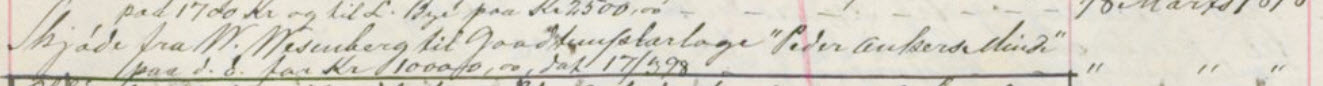 paa 1700 Kr og til L. Bye paa Kr 2500,00 — — — — 18 Marts 1898
Skjöde fra W. Wesenberg til Goodtemplarloge "Peder Ankers Minde"
paa d. e. for Kr 10000,00, dat 17/3 98 — — — " " "